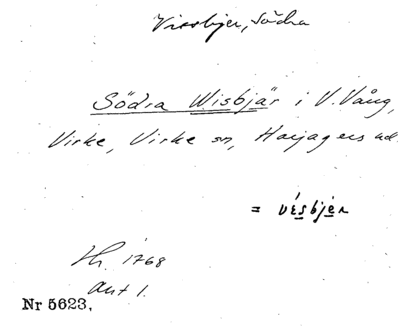 Vissbjer, Södra
Södra Wisbjär i V. Vång,
Virke, Virke sn, Harjagers hd.
= vésbjer
Th. 1768
Akt 1.
Nr 5623,